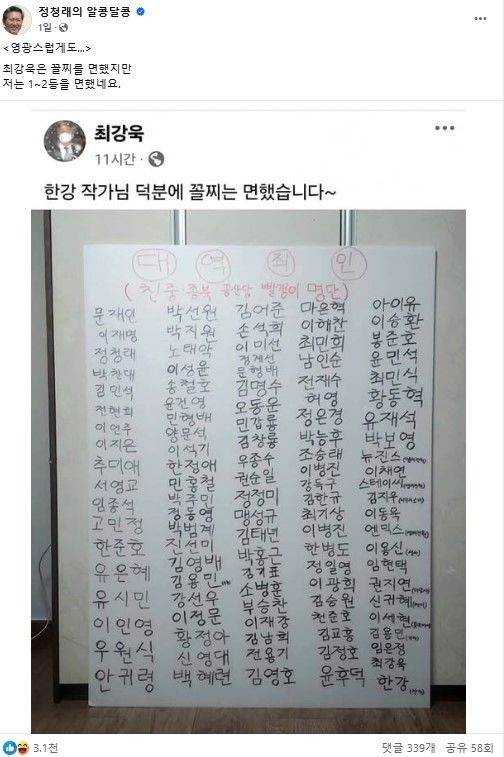 정청래의 알콩달콩
1일
<영광스럽게도...>
최강욱은 꼴찌를 면했지만
저는 1~2등을 면했네요.
최강욱
11시간
한강 작가님 덕분에 꼴찌는 면했습니다~
대 역 죄 인
(친중·종북 공산당 빨갱이 명단)
문재인
이재명
정청래
박찬대
김민석
전현희
이언주
이지은
추미애
서영교
임종석
고민정
한준호
유은혜
유시민
이인영
우원식
안귀령
박선원
박지원
노태악
이성윤
송철호
윤건영
민형배
양문석
이석기
한정애
민홍철
박주민
정동영
박범계
진선미
김영배
김용민
강선우
이정문
황정아
신영대
백혜련
김어준
손석희
이미선
정계선
문형배
김명수
오동운
민갑룡
김창룡
우종수
권순일
정정미
맹성규
김태년
박홍근
김기표
소병훈
부승찬
이재강
김남희
전용기
김영호
마은혁
이해찬
최민희
남인순
전재수
허영
정은경
박능후
조승래
이병진
강득구
김한규
최기상
이병진
한병도
정일영
이광희
김승원
천준호
김교흥
김정호
윤후덕
아이유
이승환
봉준호
윤민석
최민식
황동혁
유재석
박보영
뉴진스
이채연
스테이씨
김지우
이동욱
엔믹스
이용신
임현택
권지연
신귀혜
이세현
김용민
임은정
최강욱
한강(작가)
3.1천
댓글 339개 공유 58회